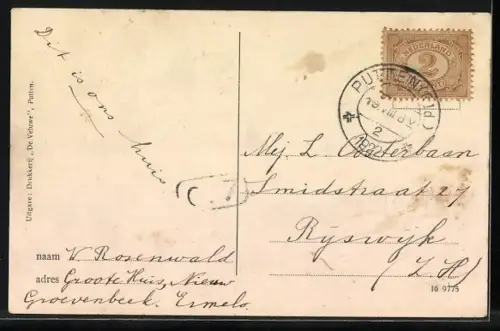 Dit is ons
huis
NEDERLAND
2
PUTTEN (Gld.)
2
1922
Mej. L. Oosterbaan
Smidstraat 27
Ryswyk
(Z.H.)
Uitgave: Drukkerij „De Veluwe”, Putten.
naam W. Rosenwald
adres Groote Huis, Nieuw
Groevenbeek. Ermelo.
16 9775